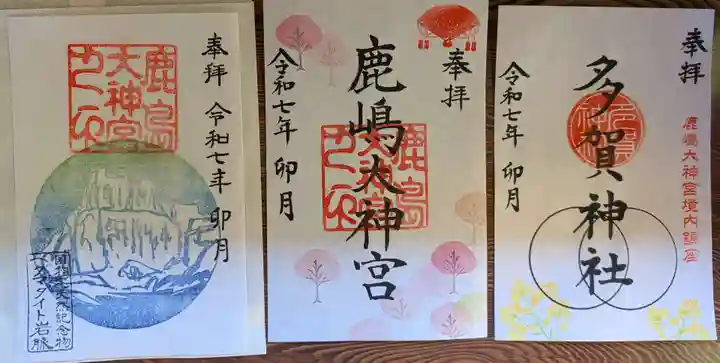 奉拝 令和七年 卯月
鹿島
大神宮
之印
国指定天然記念物
ペグマタイト岩脈
奉拝
鹿嶋大神宮
鹿島
大神宮
之印
令和七年 卯月
奉拝
鹿嶋大神宮境内鎮座
多賀神社
令和七年 卯月